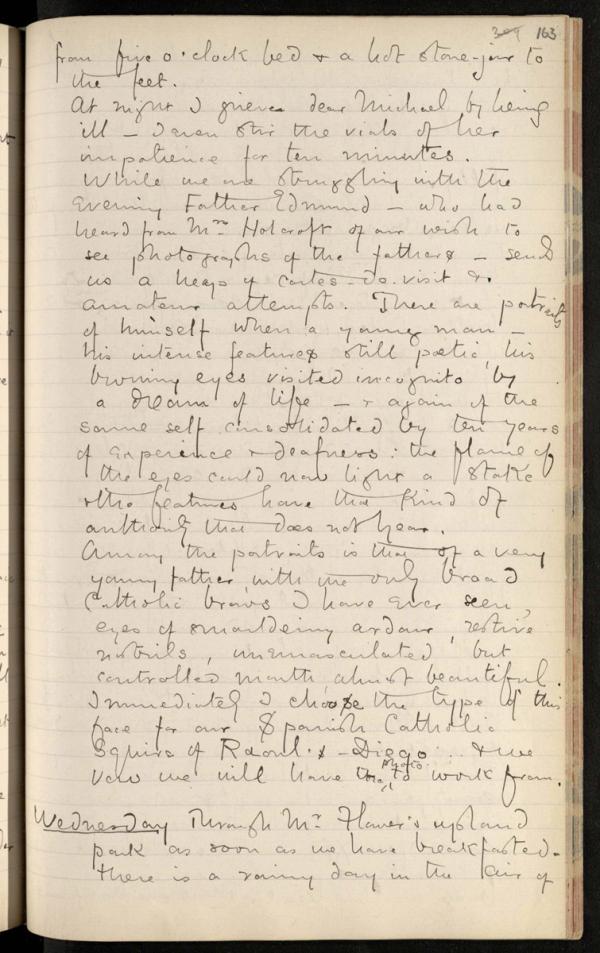 309 163
from five o'clock bed & a hot stone-jar to
the feet.
At night I grieve dear Michael by being
ill — I even stir the vials of her
impatience for ten minutes.
While we are struggling with the
evening Father Edmund — who had
heard from Mrs Holcroft of our wish to
see photographs of the fathers — sends
us a heap of cartes-de-visit &
amateur attempts. There are portraits
of himself when a young man —
his intense features still poetic, his
burning eyes visited incognito by
a dream of life — & again of the
same self consolidated by ten years
of experience & deafness: the flame of
the eyes could now light a stake
& the features have that kind of
authority that does not hear.
Among the portraits is that of a very
young father, with the only broad
Catholic brows I have ever seen,
eyes of smouldering ardour, restive
nostrils, unemasculated, but
controlled mouth almost beautiful.
Immediately I choose the type of this
face for our Spanish Catholic
Squire of Raoul's — Diego .. & we
vow we will have the photo to work from.
Wednesday Through Mr Flower's upland
park as soon as we have breakfasted.
There is a rainy day in the air of